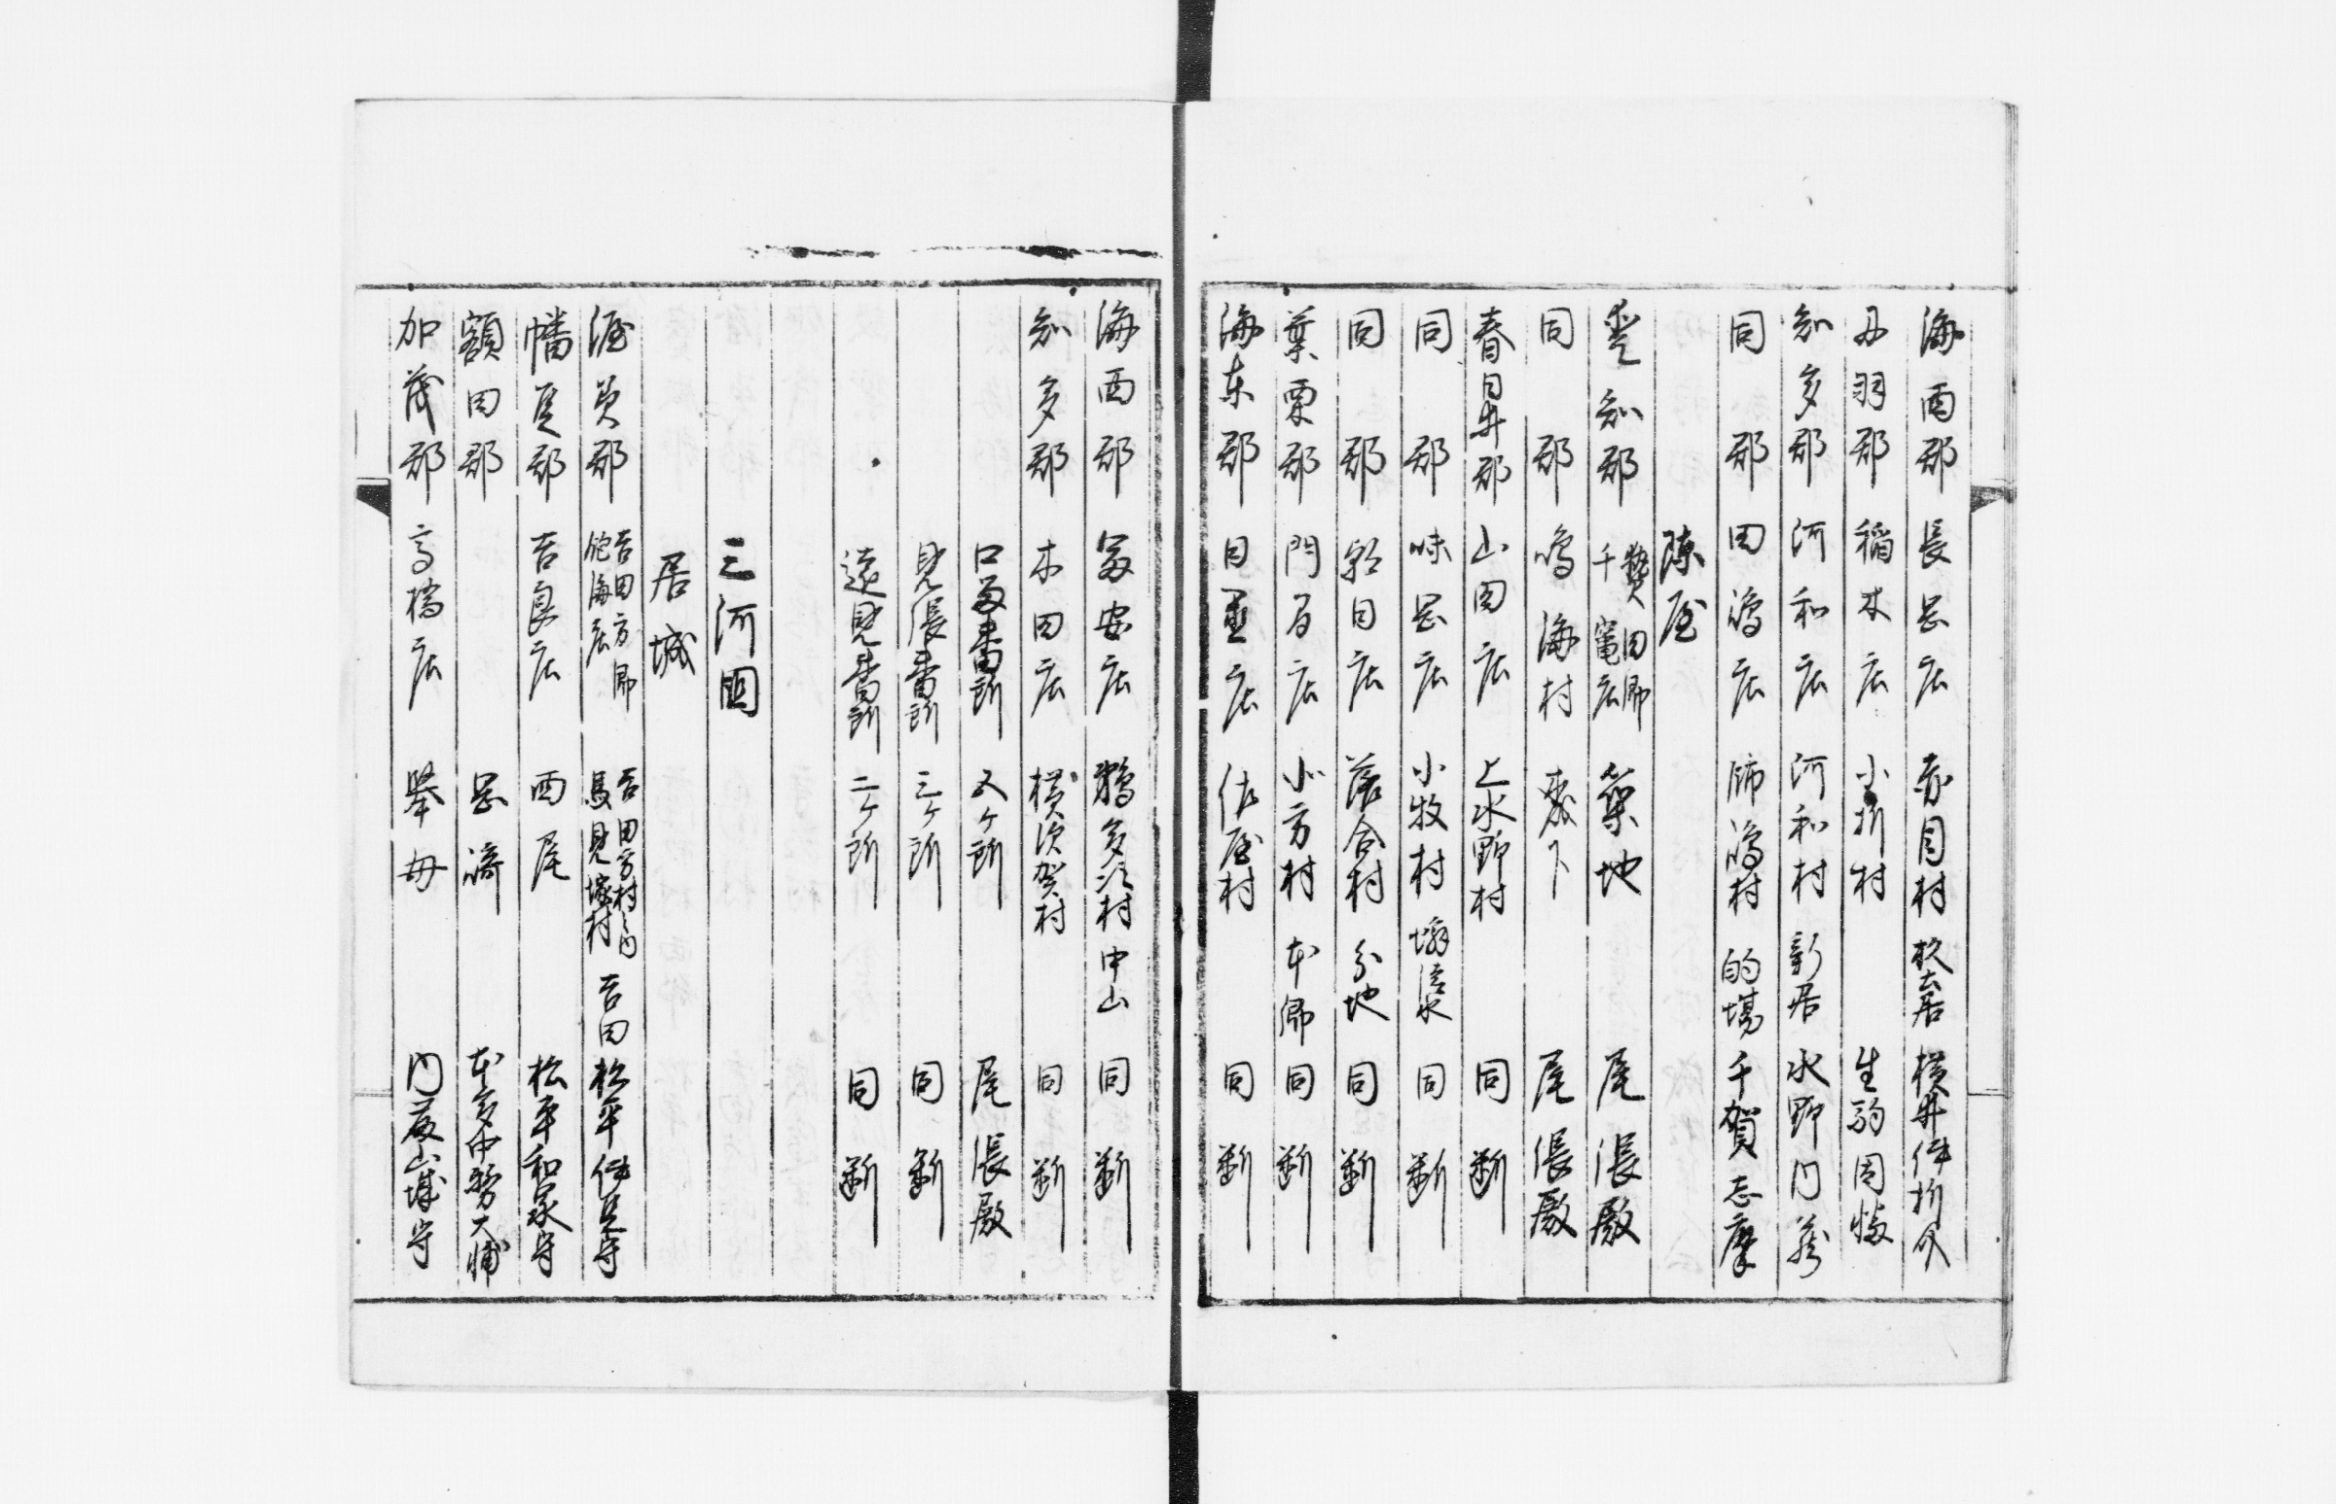 海西郡 長岡庄 赤目村 杁古居 横井伊折介
丹羽郡 稲木庄 小折村 生駒因幡
知多郡 河和庄 河和村 新居 水野内蔵
同 郡 田嶋庄 師嶋村 的場 千賀志摩
陣屋
愛知郡 熱田郷 千竈庄 築地 尾張殿
同 郡 鳴海村 森下 尾張殿
春日井郡 山田庄 上水野村 同断
同 郡 味岡庄 小牧村 同断
同 郡 羽目庄 落合村 分地 同断
葉栗郡 門間庄 小方村 本郷 同断
海東郡 日置庄 佐屋村 同断
海西郡 富安庄 鵜多須村 中山 同断
知多郡 木田庄 横須賀村 同断
口留番所 五ヶ所 尾張殿
見張番所 三ヶ所 同断
遠見番所 二ヶ所 同断
三河国
居城
渥美郡 吉田方郷 飽海庄 吉田方村之内 馬見塚村 吉田 松平伊豆守
幡豆郡 吉良庄 西尾 松平和泉守
額田郡 岡崎 本多中務大輔
加茂郡 高橋庄 挙母 内藤山城守